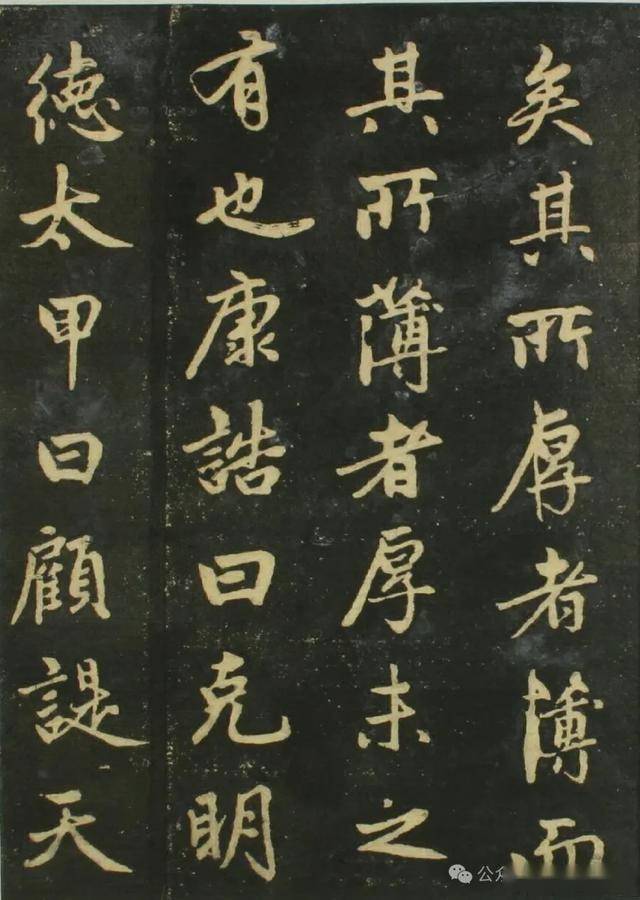 矣其所厚者薄而
其所薄者厚未之
有也康誥曰克明
德太甲曰顧諟天
公众